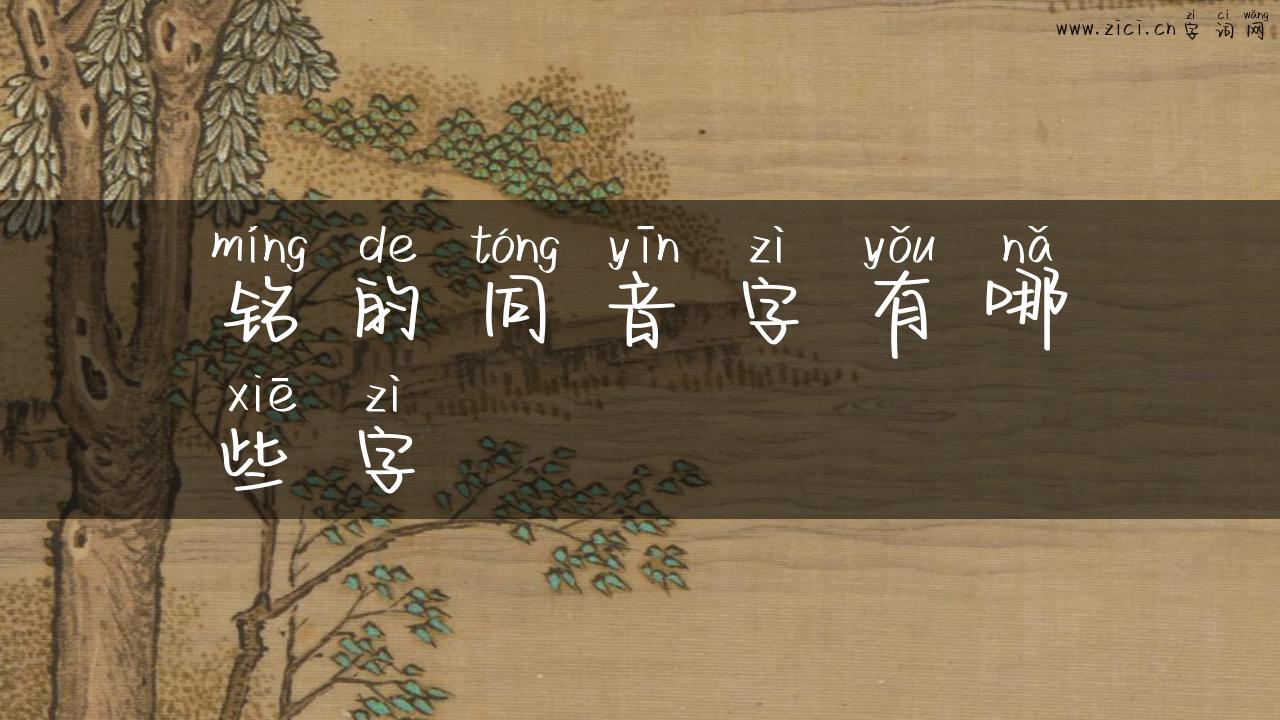 zì cí wǎng
www.zici.cn 字词网
míng de tóng yīn zì yǒu nǎ
铭的同音字有哪
xiē zì
些字